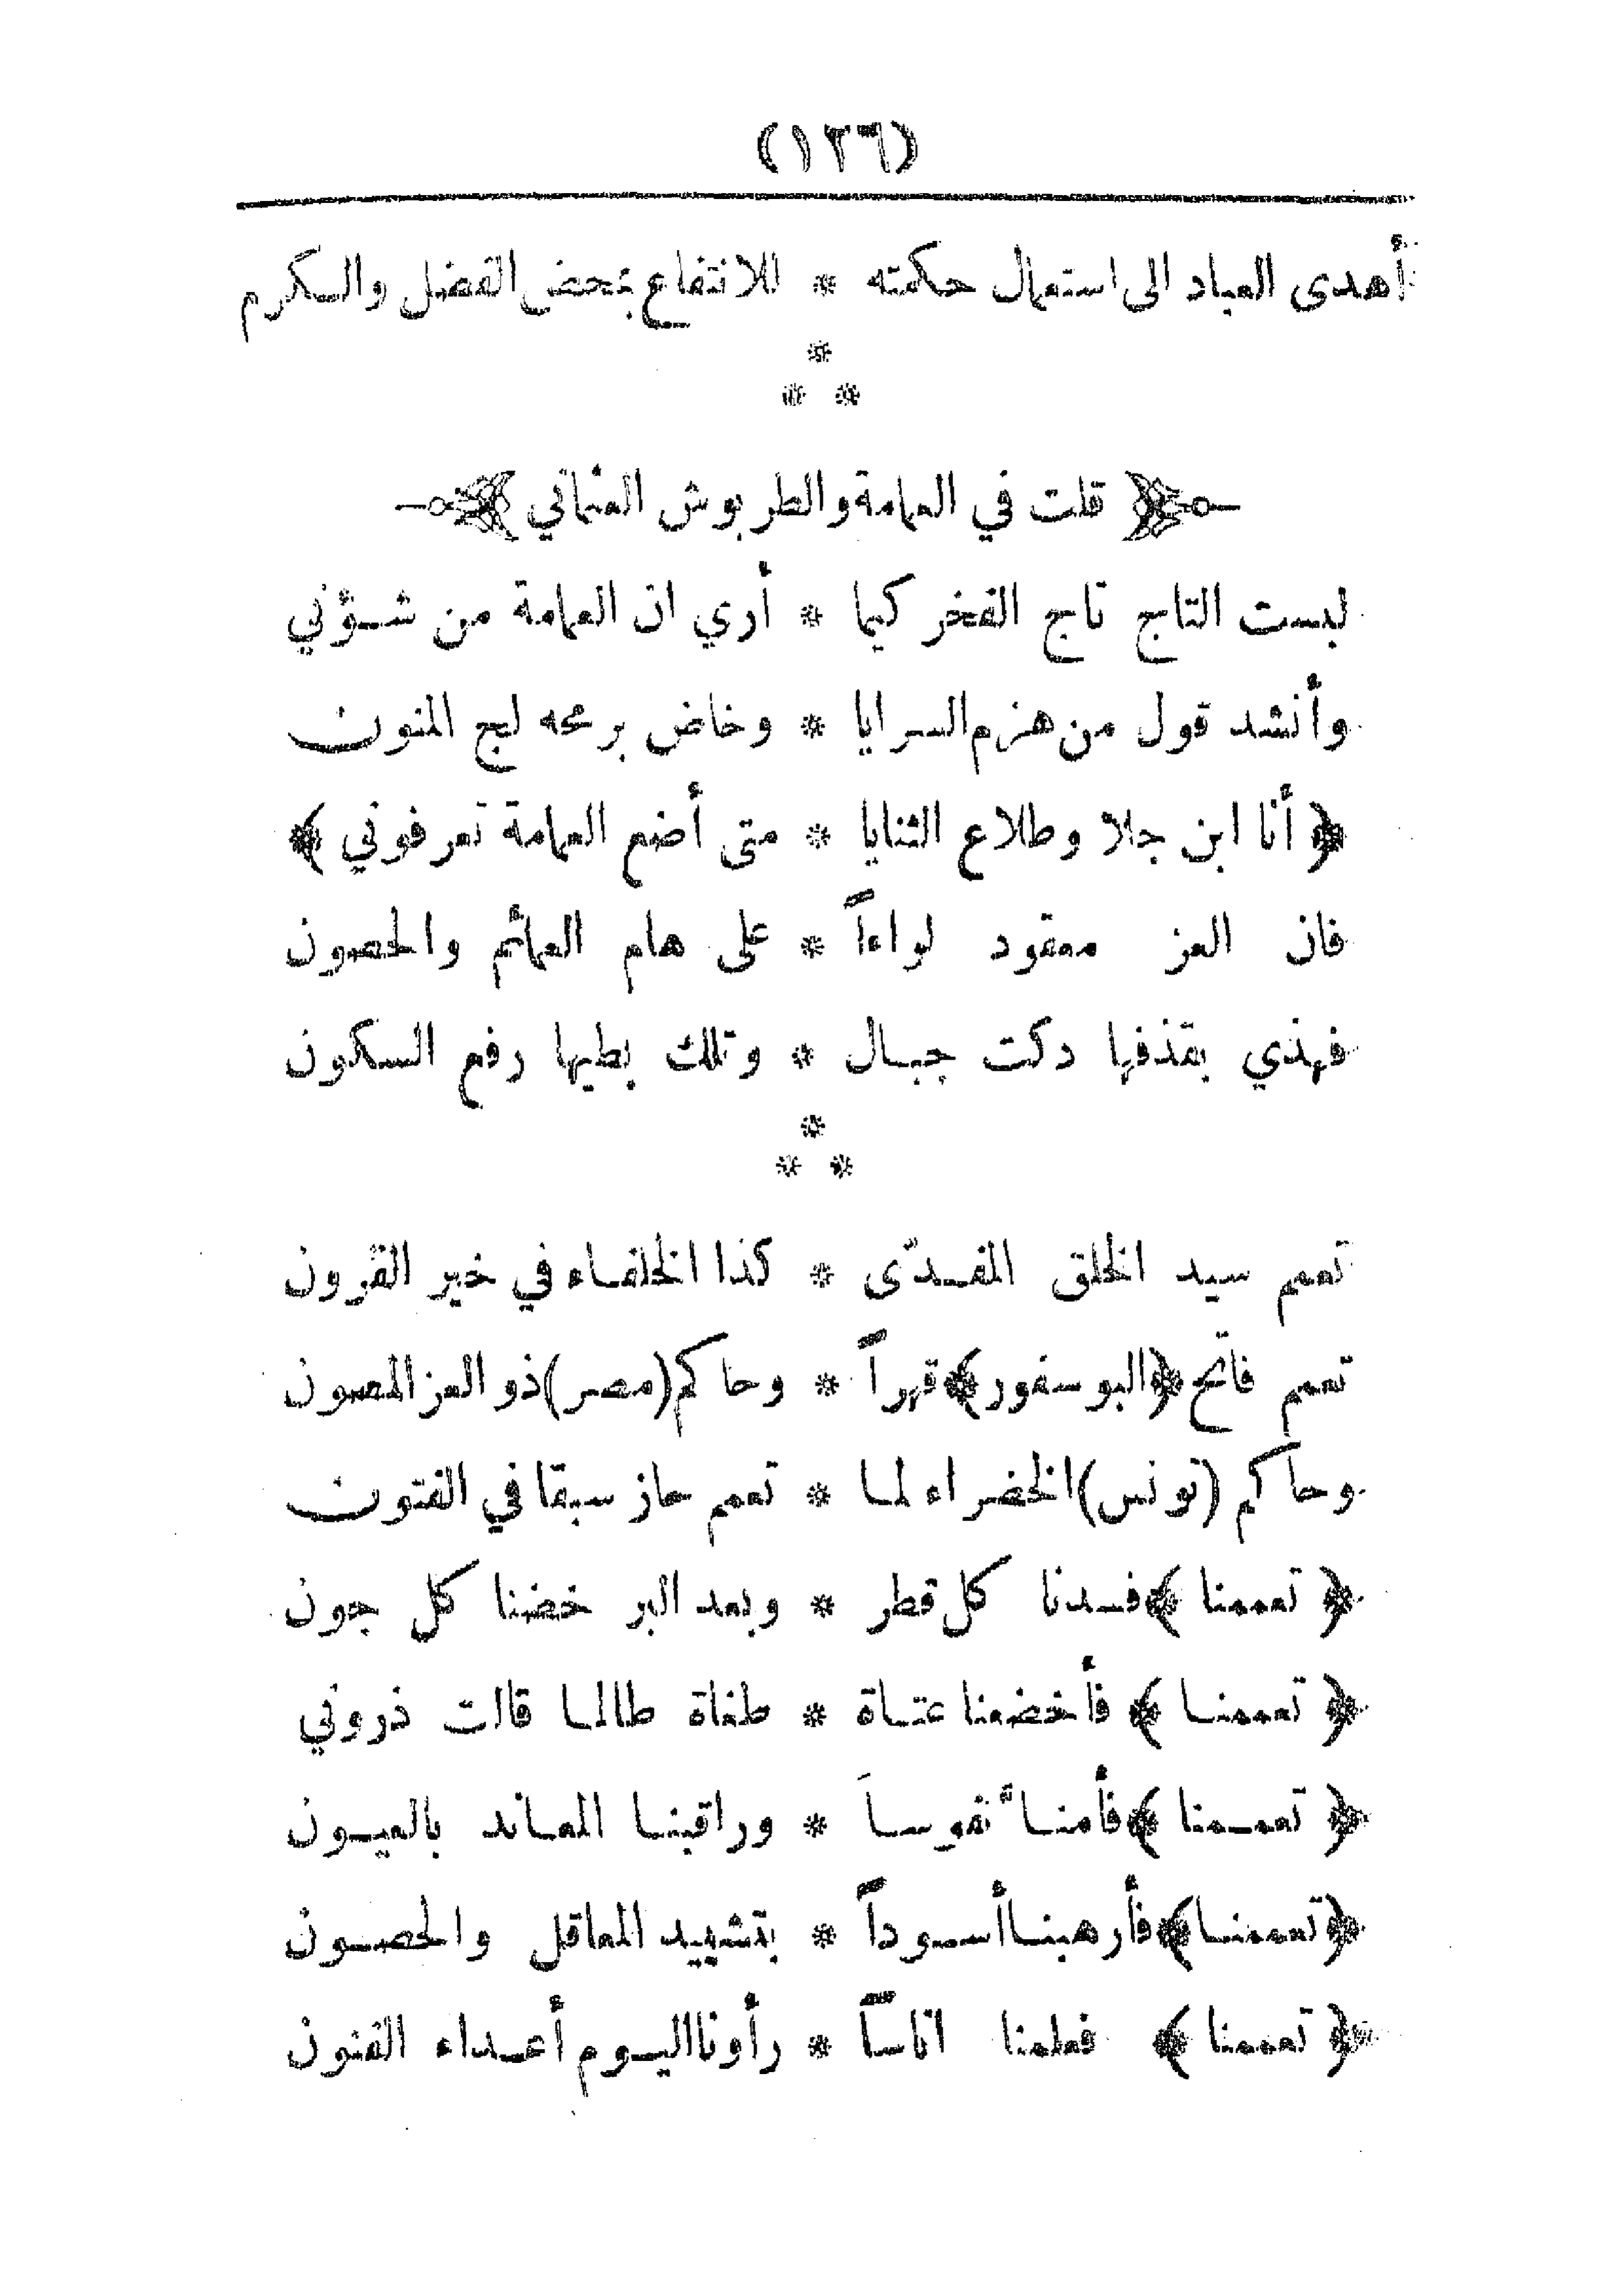 (١٢٦)
أهدى العباد الى استعمال حكمته * للانتفاع بمحض الفضل والكرم
*
* *
﴿ قلت في العمامة والطربوش العثماني ﴾
لبست التاج تاج الفخر كيما * أري ان العمامة من شؤني
وأنشد قول من هزم السرايا * وخاض برمحه لجج المنون
﴿ أنا ابن جلا وطلاع الثنايا * متى أضع العمامة تعرفوني ﴾
فان العز معقود لواءاً * على هام العمائم والحصون
فهذي بقذفها دكت جبال * وتلك بطيها رفع السكون
*
* *
تعمم سيد الخلق المفدّى * كذا الخلفاء في خير القرون
تعمم فاتح ﴿البوسفور﴾ قهراً * وحاكم (مصر) ذو العز المصون
وحاكم (تونس) الخضراء لما * تعمم حاز سبقا في الفتون
﴿ تعممنا ﴾ فسدنا كل قطر * وبعد البر خضنا كل جون
﴿ تعممنا ﴾ فأخضعنا عتاة * طغاة طالما قالت ذروني
﴿ تعممنا ﴾ فأمناً نفوساَ * وراقبنا المعاند بالعيون
﴿تعممنا﴾ فأرهبنا أسوداً * بتشييد المعاقل والحصون
﴿ تعممنا ﴾ فعلمنا اناساً * رأونا اليوم أعداء الفنون